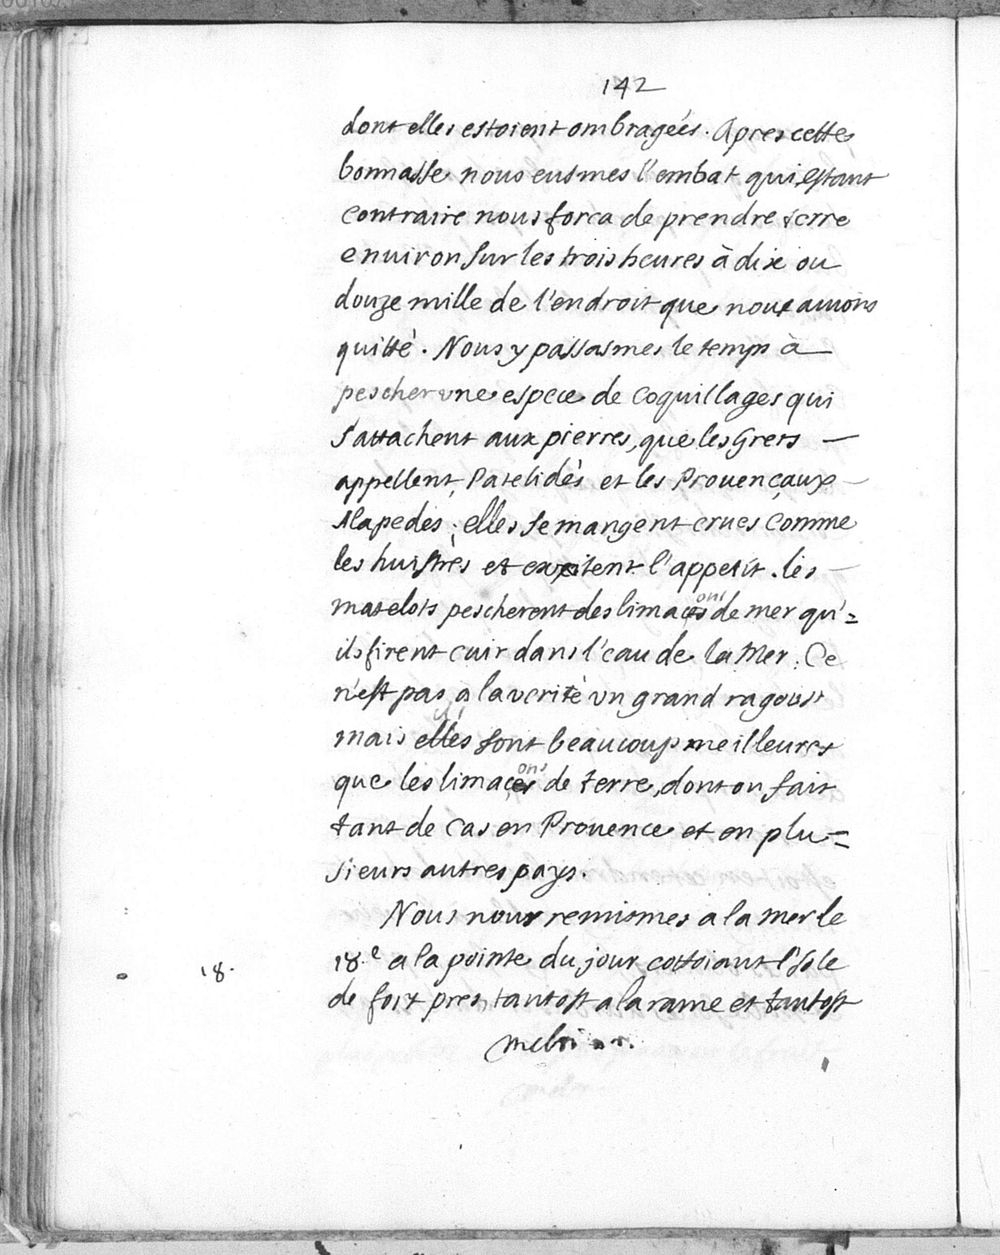 142
dont elles estoient ombragées. Apres cette
bonnasse nous eusmes l'embat qui estant
contraire nous forca de prendre terre
enuiron sur les trois heures à dix ou
douze mille de l'endroit que nous auions
quitté. Nous y passasmes le temps à
pescher vne espece de coquillages qui
s'attachent aux pierres, que les Grers
appellent, Patelidès et les Prouençaux
Alapedes; elles se mangent crues comme
les huistres et exitent l'appetit. les
matelots pescherent des limaçons de mer qu'=
ils firent cuir dans l'eau de la Mer. Ce
n'est pas a la verité vn grand ragoust
mais elles sont beaucoup meilleures
que les limaçons de terre, dont on fait
tant de cas en Prouence et en plu=
sieurs autres pays.
Nous nous remismes a la mer le
18.e a la pointe du jour cottoiant l'Isle
18.
de fort pres, tantost a la rame et tantost